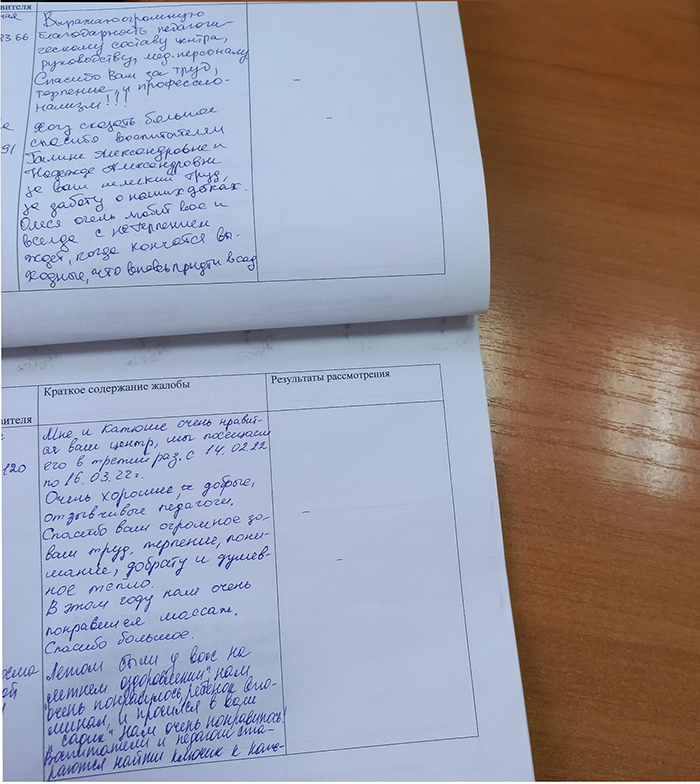 вителя
ная
83 66
Выражаю огромную
благодарность педагоги-
ческому составу центра,
руководству, мед. персоналу
Спасибо Вам за труд,
терпение и профессио-
нализм!!!
–
–
91
Хочу сказать большое
спасибо воспитателям
Галине Александровне и
Надежде Александровне
за ваш нелегкий труд,
за заботу о наших детках.
Олеся очень любит вас и
всегда с нетерпением
ждет, когда кончатся вы-
ходные, что вновь придти в сад
вителя
Краткое содержание жалобы
Результаты рассмотрения
120
Мне и Катюше очень нравит-
ся ваш центр, мы посещаем
его в третий раз. с 14.02.22
по 16.03.22г.
Очень хорошие, и добрые,
отзывчивые педагоги.
Спасибо вам огромное за
ваш труд, терпение, пони-
мание, доброту и душев-
ное тепло.
В этом году нам очень
понравился массаж.
Спасибо большое.
–
–
ой
Летом были у вас на
"летнем оздоровлении" нам
очень понравилось, ребенок вспо-
минал, и просился в ваш
"садик" нам очень понравилось!
Воспитатели и педагоги ста-
раются найти ключик к кажд-